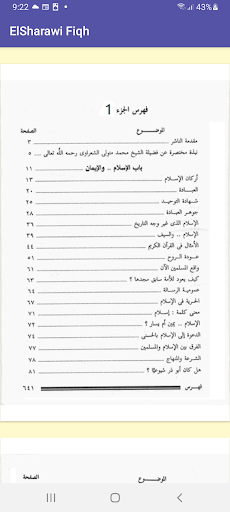 9:22 43%
ElSharawi Fiqh
فهرس الجزء 1
الموضـــوع الصفحة
مقدمة الناشر ٣
نبذة مختصرة عن فضيلة الشيخ محمد متولى الشعراوى رحمه الله تعالى ٥
باب الإسلام .. والإيمان ١١
أركان الإسلام ١٣
العبـادة ٢٠
شهـادة التوحيـد ٢٥
جوهر العبـادة ٢٨
الإسلام الذى غير وجه التاريخ ٣٦
الإسلام .. والسيف ٣٩
الأمثال فى القرآن الكريم ٤٤
عـودة الـروح ٥١
واقع المسلمين الآن ٦١
كيف يعود للأمة سابق مجدها ؟ ٦٢
عموميـة الرسالة ٦٤
الحـرية فى الإسلام ٦٧
معنى كلمة : إسلام ٧١
الإسلام .. يمين أم يسار ؟ ٧٢
الدعوة إلى الإسلام بالحسنى ٧٤
الفرق بين الإسلام والمسلمين ٧٧
الشرعة والمنهاج ٧٨
هل كان أبو ذر شيوعيًا ؟ ٨١
فهـرس ٦٤١
الموضـــوع الصفحة